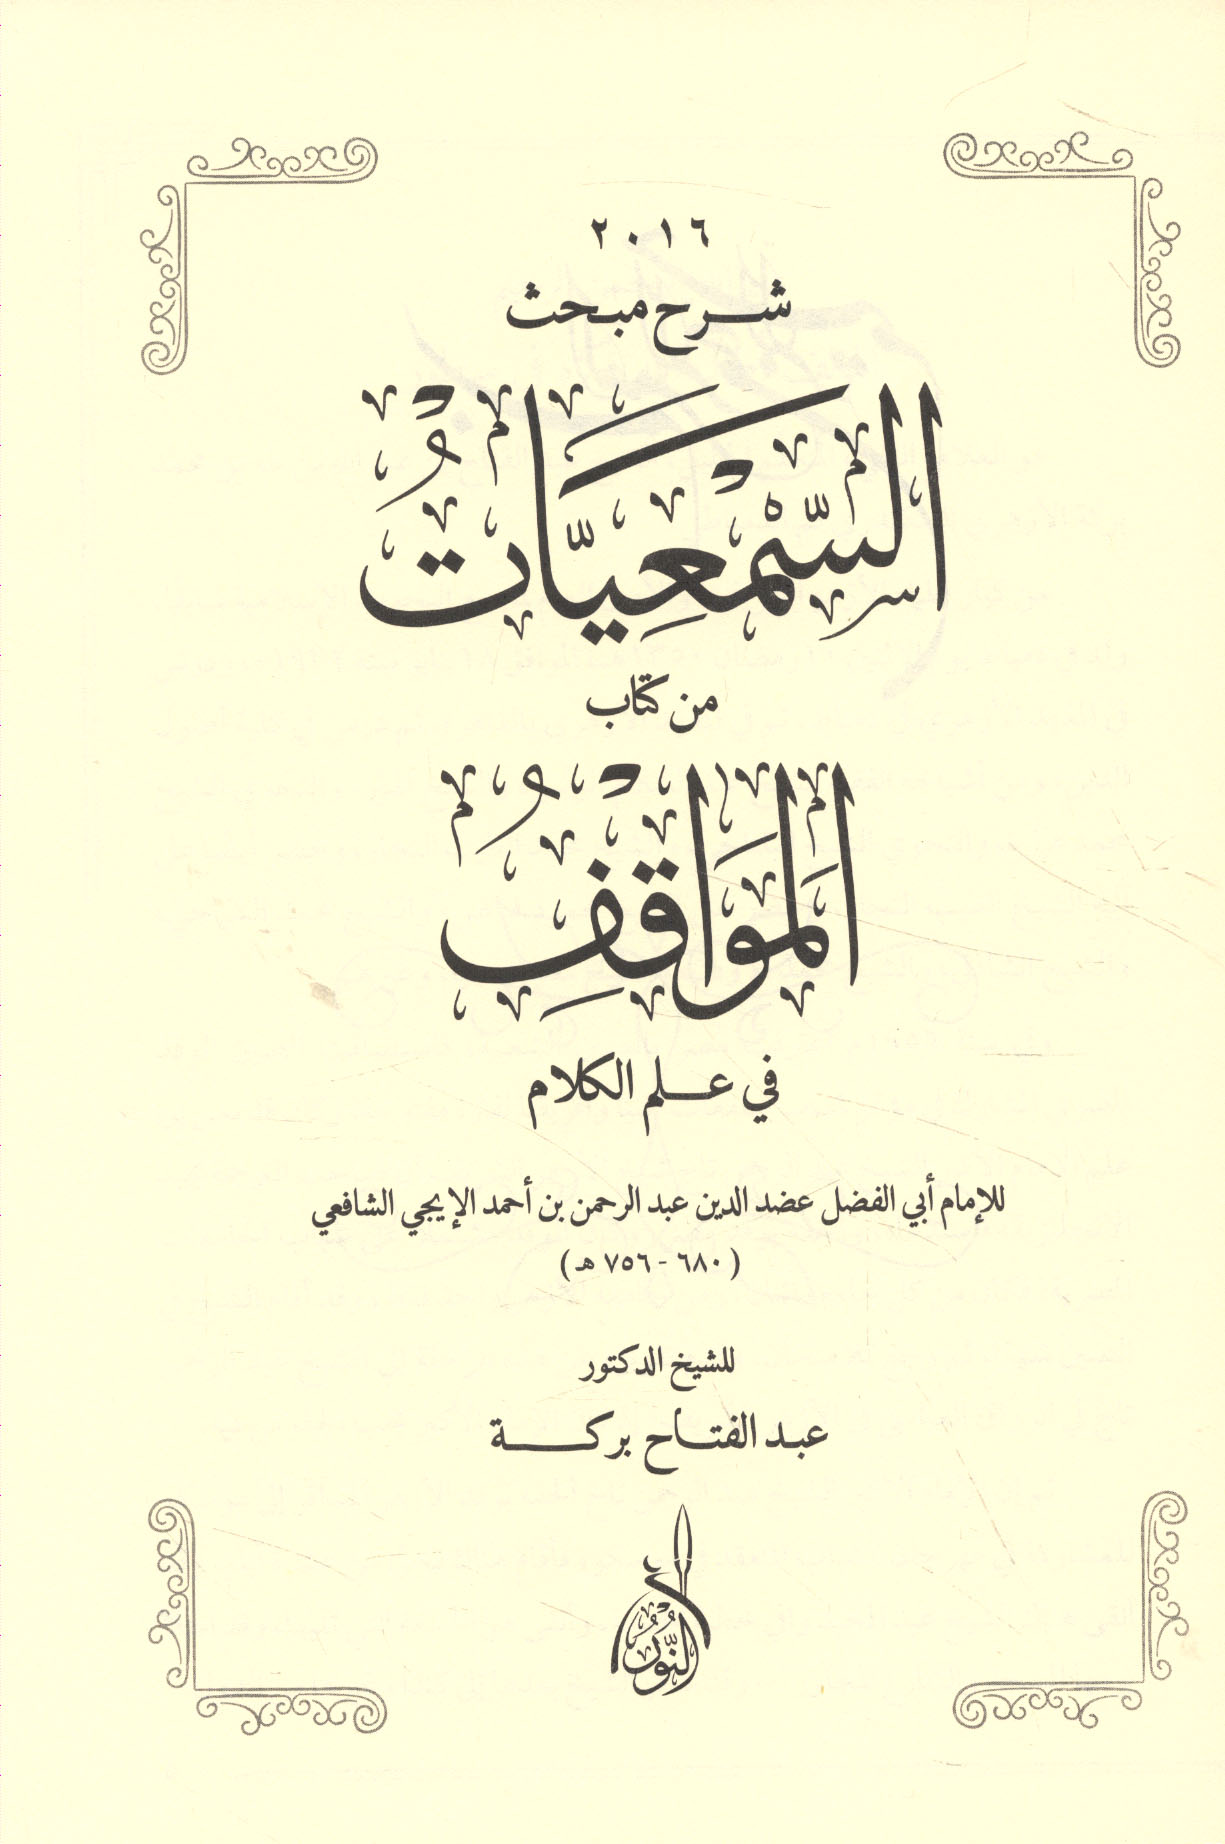 ٢٠١٦
شرح مبحث
السَّمْعِيَّاتُ
من كتاب
المَوَاقِفِ
في علم الكلام
للإمام أبي الفضل عضد الدين عبد الرحمن بن أحمد الإيجي الشافعي
(٦٨٠ - ٧٥٦ هـ)
للشيخ الدكتور
عبد الفتاح بركة
النُّورُ